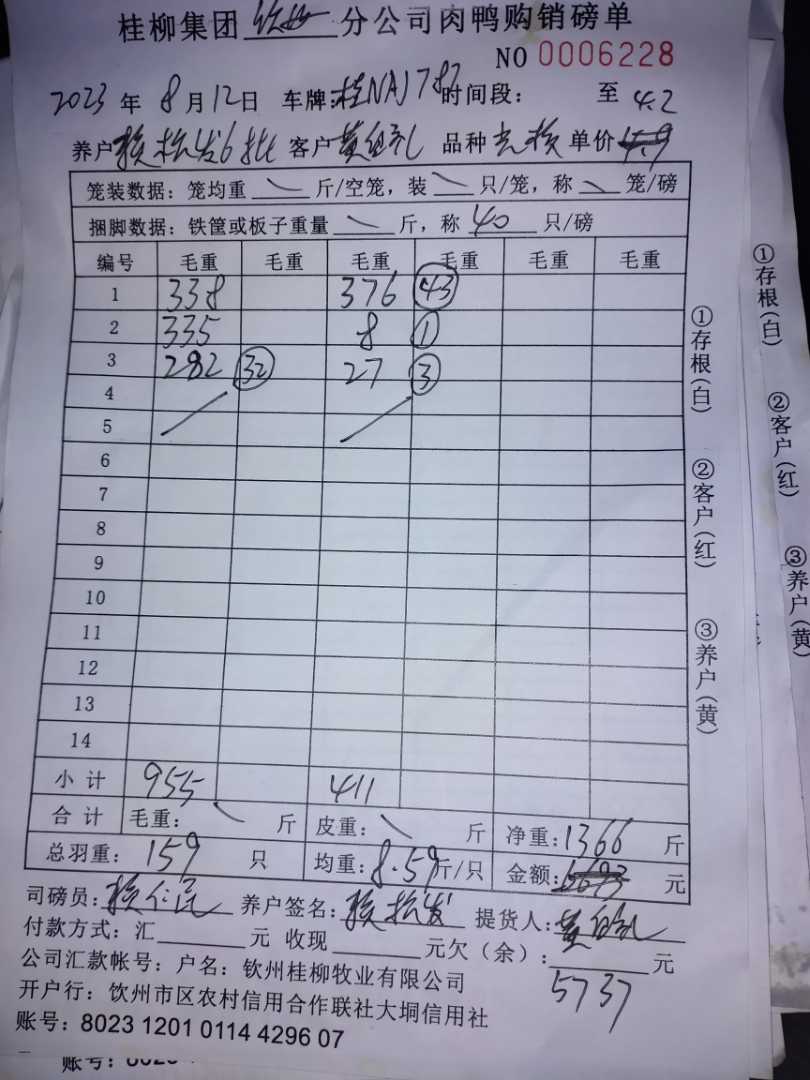 桂柳集团 钦州 分公司肉鸭购销磅单
NO 0006228
2023 年 8 月 12 日 车牌:桂NAJ787 时间段: 至 4.2
养户 赖松发6批 客户 品种 单价 4.9
笼装数据:笼均重 斤/空笼,装 只/笼,称 笼/磅
捆脚数据:铁筐或板子重量 斤,称 40 只/磅
编号 毛重 毛重 毛重 毛重 毛重 毛重
1 338 376 43
2 335 8 1
3 282 32 27 3
4
5
6
7
8
9
10
11
12
13
14
小计 955 411
合计 毛重: 斤 皮重: 斤 净重:1366 斤
总羽重: 159 只 均重:8.59 斤/只 金额: 元
司磅员: 养户签名:赖松发 提货人:
付款方式:汇 元 收现 元欠(余): 元
5737
公司汇款帐号:户名:钦州桂柳牧业有限公司
开户行:饮州市区农村信用合作联社大垌信用社
账号:8023 1201 0114 4296 07
①存根(白)
②客户(红)
③养户(黄)
①存根(白)
②客户(红)
③养户(黄
账号: